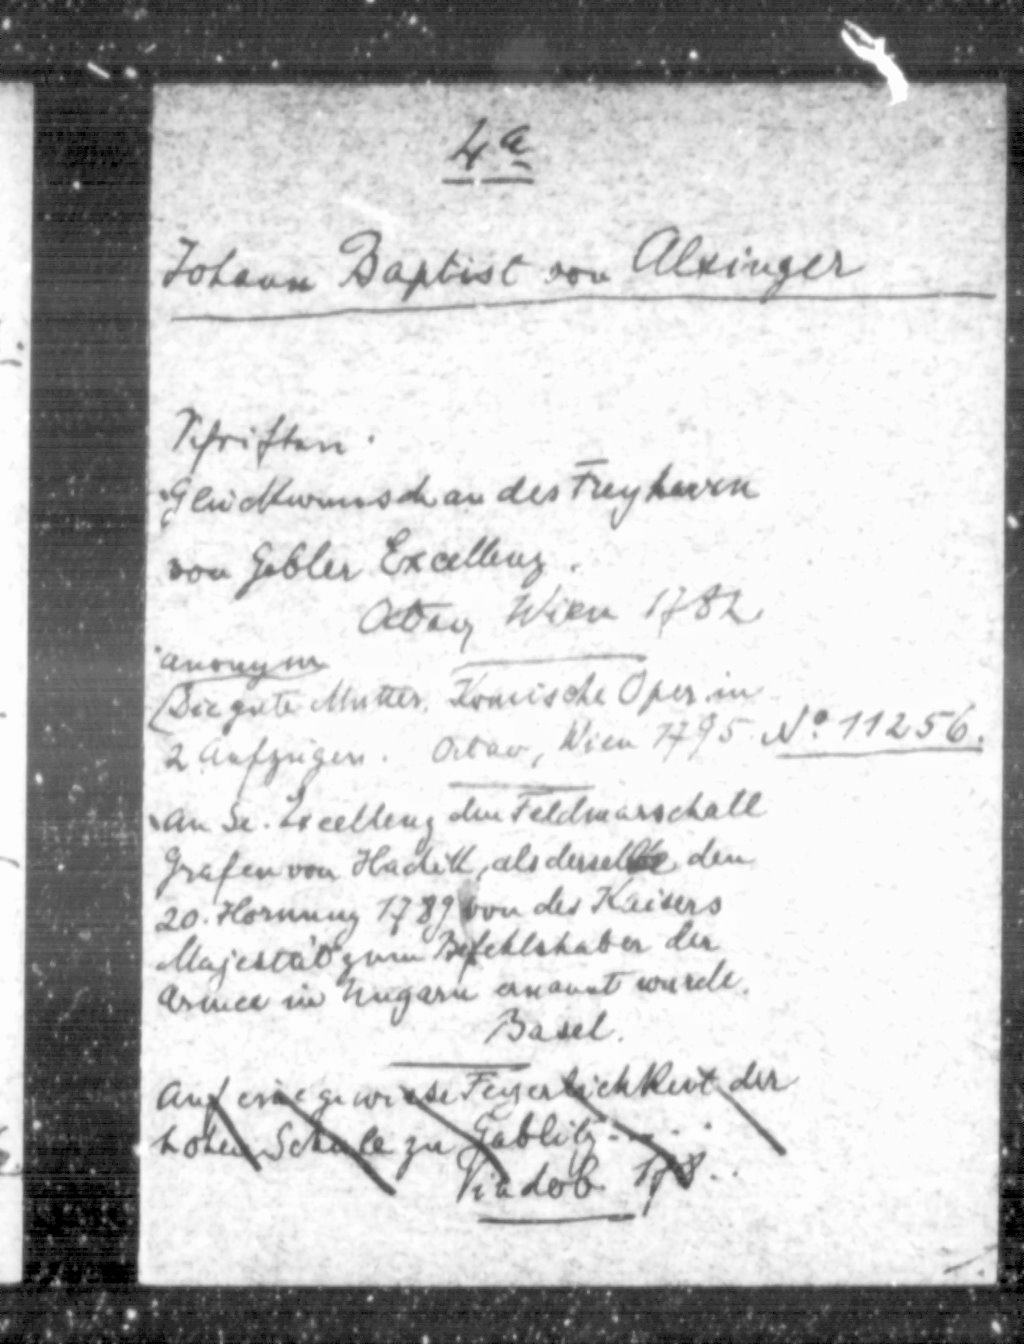 4a
Johann Baptist von Alxinger
Schriften.
Glückwunsch an des Freyherrn
von Gebler Excellenz.
Octav Wien 1782
anonym
(Die gute Mutter. Komische Oper in
2 Aufzügen. Octav, Wien 1795. No. 11256.
An Se. Excellenz den Feldmarschall
Grafen von Hadik, als derselbe den
20. Hornung 1789 von des Kaisers
Majestät zum Befehlshaber der
Armee in Ungarn ernannt wurde.
Basel.
Auf eine gewisse Feyerlichkeit der
hohen Schule zu Gablitz....
Vindob. 178..